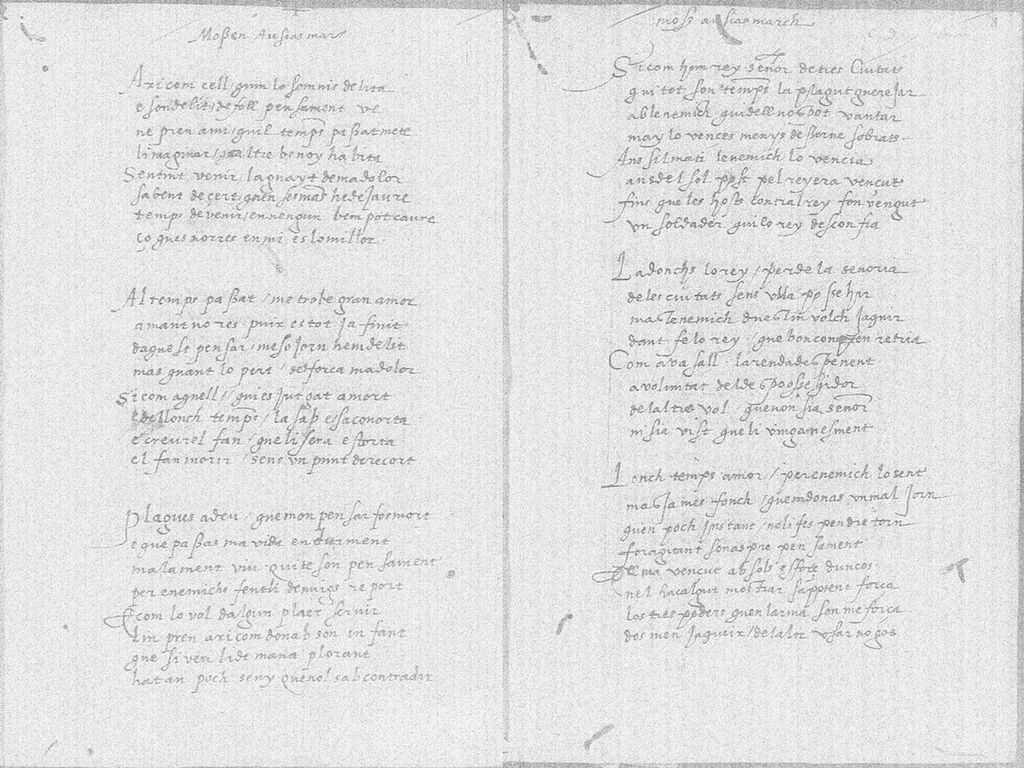 Moßen Ausias marc
Axi com cell / qui n lo somnis delita
e son delit / de foll pensament ve
ne pren a mi / quel temps passat me te
l imaginar / qu altre be no y habita
Sentint venir / l aguayt de ma dolor
sabent de cert / quen ses mas he de jaure
temps de venir / en nengun bem pot caure
ço ques no res en mi es lo millor
Al temps passat / me trobe gran amor
amant no res puix es tot ja finit
daquest pensar / me sojorn hem delit
mas quant lo pert / sesforça ma dolor
Si com aquell / qui es jutgat a mort
e de llonch temps / la sap e saconorta
e creurel fan / que li sera estorta
el fan morir / sens un punt de recort
Plagues a deu / que mon pensar fos mort
e que passas ma vida en durment
malament viu qui te son pensament
per enemich / fentli denuigs report
E com lo vol dalgun plaer servir
lin pren axi com dona ab son infant
que si veri li demana plorant
ha tan poch seny que nol sab contradir
moss ausias march
Si com hun rey señor de tres Ciutats
qui tot son temps la plagut guerejar
ab lenemich qui dell nos pot vantar
may lo vences menys desserne sobrats
Ans sil mati lenemich lo vencia
ans del sol post pel rey era vencut
fins que les hosts contral rey fon vengut
un soldader qui lo rey desconfia
Ladonchs lo rey / perde la senoria
de les ciutats sens ulla possehir
mas lenemich dues lin volch jaquir
dant fe lo rey / que bon compte n retria
Com a vasall / la renda despenent
a voluntat del despossehidor
de laltra vol / que non sia señor
ni sia vist que li vinga nesment
Lonch temps amor / per enemich lo sent
mas james fonch / quem donas un mal jorn
quen poch instant / no li fes pendre torn
foragitant son aspre pensament
Tot ma vencut ab sol esforç duncos
nel ha calgut mostrar sa potent força
los tres poders quen larma son me força
dos men jaqueix / de laltr usar no gos